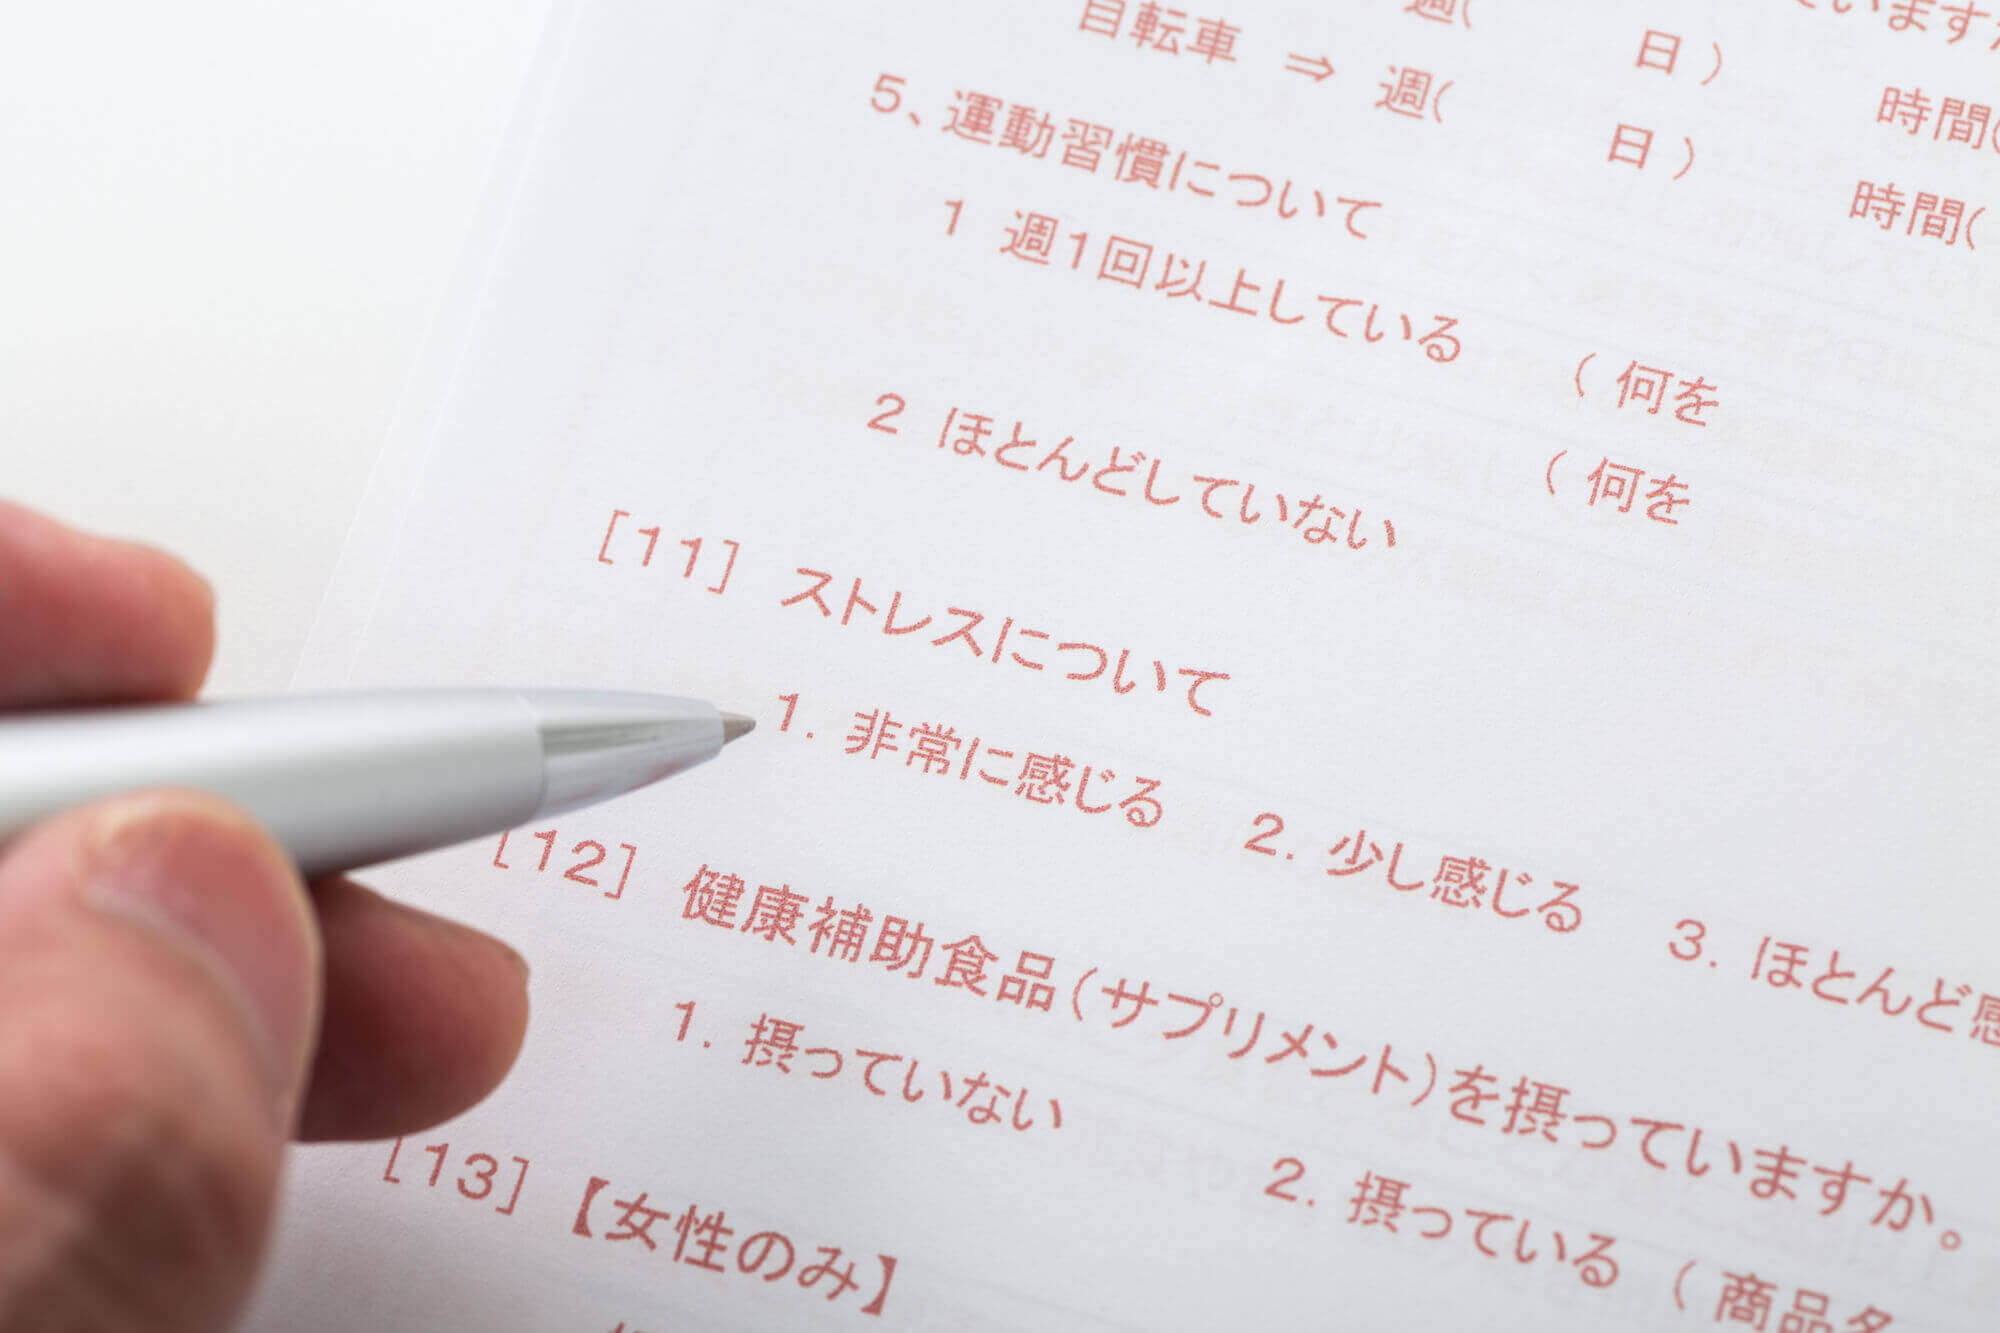 いますか
週(　　日）
自転車 ⇒ 週(　　日）　時間(
時間(
5、運動習慣について
1 週1回以上している　（ 何を
2 ほとんどしていない　（ 何を
[11] ストレスについて
1. 非常に感じる　2. 少し感じる　3. ほとんど感
[12] 健康補助食品（サプリメント）を摂っていますか。
1. 摂っていない　2. 摂っている （ 商品名
[13] 【女性のみ】